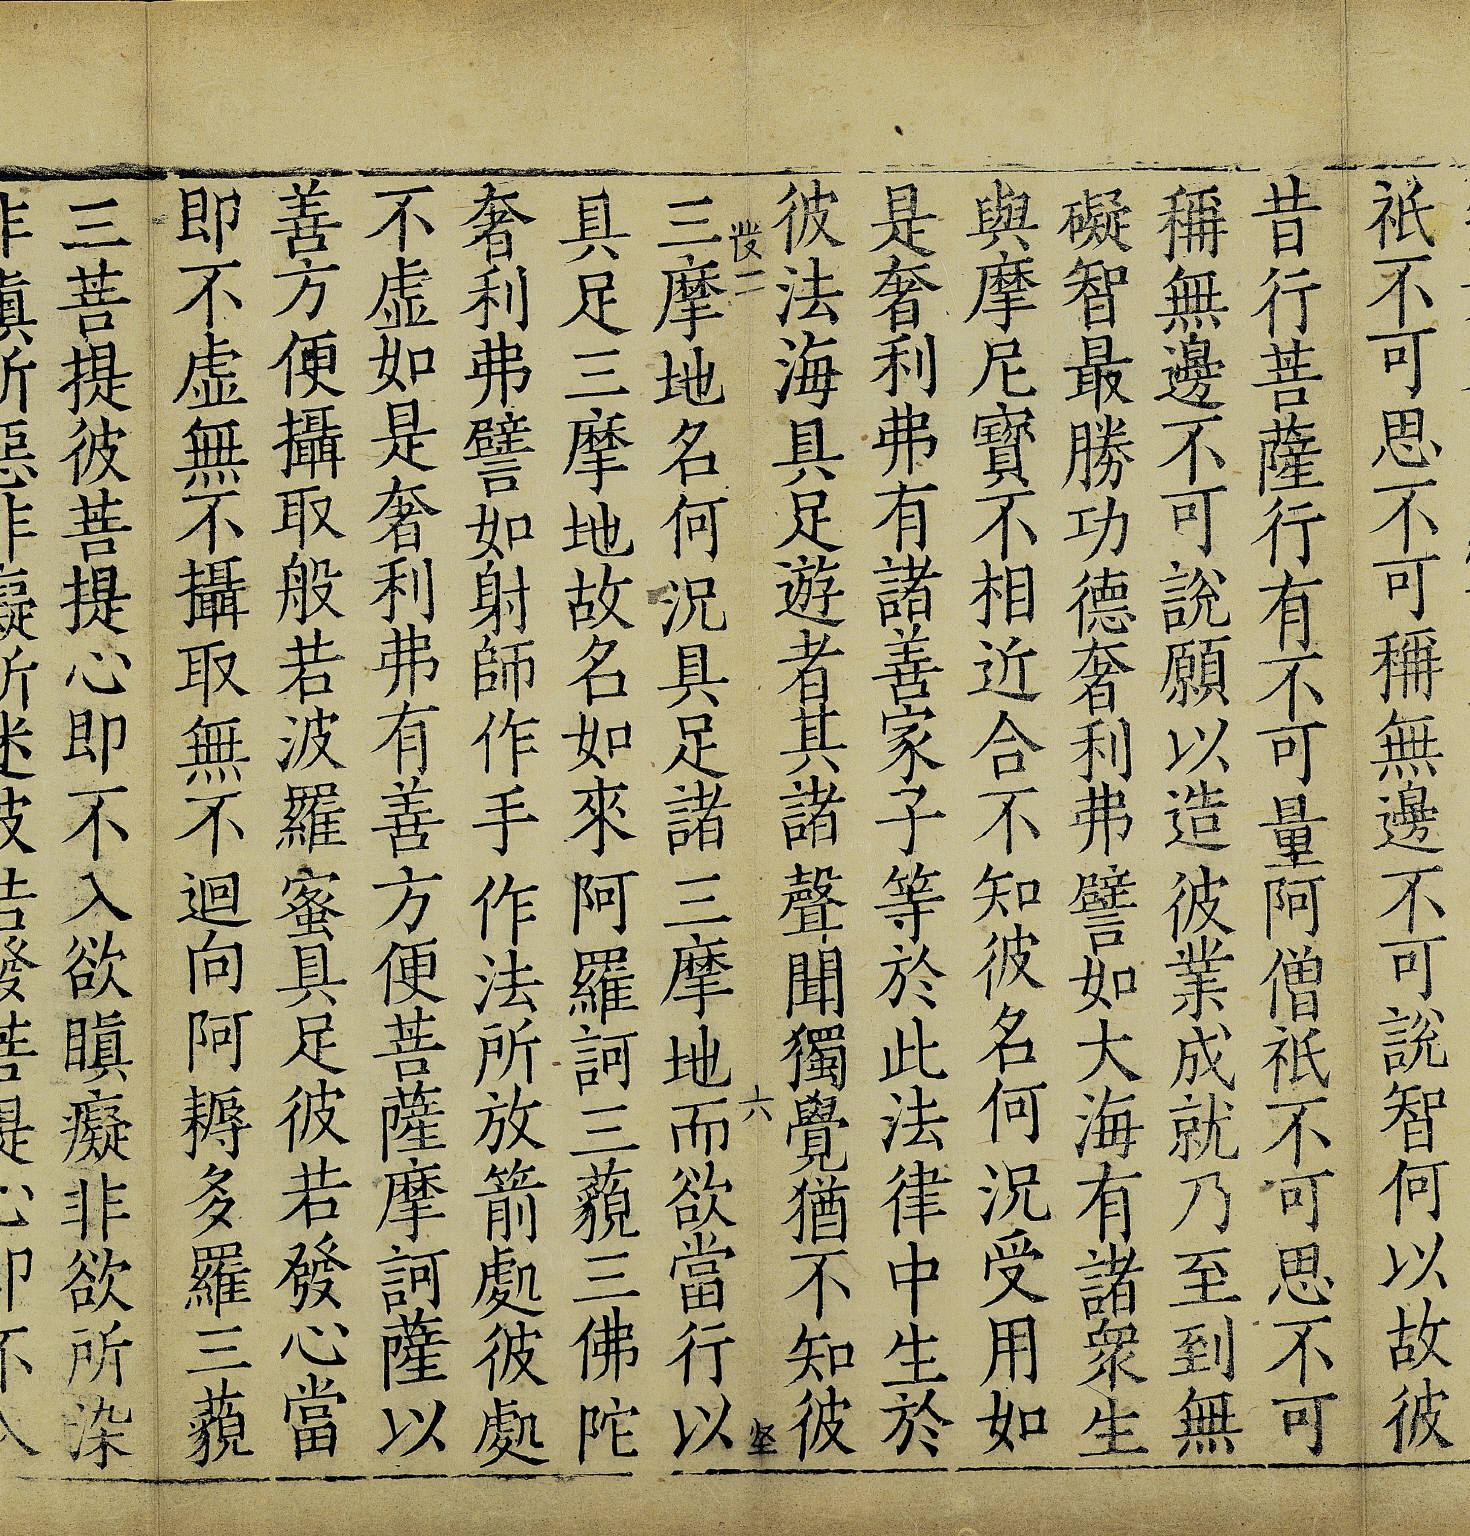 祇不可思不可稱無邊不可說智何以故彼
昔行菩薩行有不可量阿僧祇不可思不可
稱無邊不可說願以造彼業成就乃至到無
礙智最勝功德奢利弗譬如大海有諸衆生
與摩尼寶不相近合不知彼名何況受用如
是奢利弗有諸善家子等於此法律中生於
彼法海具足遊者其諸聲聞獨覺猶不知彼
六
三摩地名何況具足諸三摩地而欲當行以
具足三摩地故名如來阿羅訶三藐三佛陀
奢利弗譬如射師作手作法所放箭處彼處
不虛如是奢利弗有善方便菩薩摩訶薩以
善方便攝取般若波羅蜜具足彼若發心當
即不虛無不攝取無不迴向阿耨多羅三藐
三菩提彼菩提心即不入欲瞋癡非欲所染